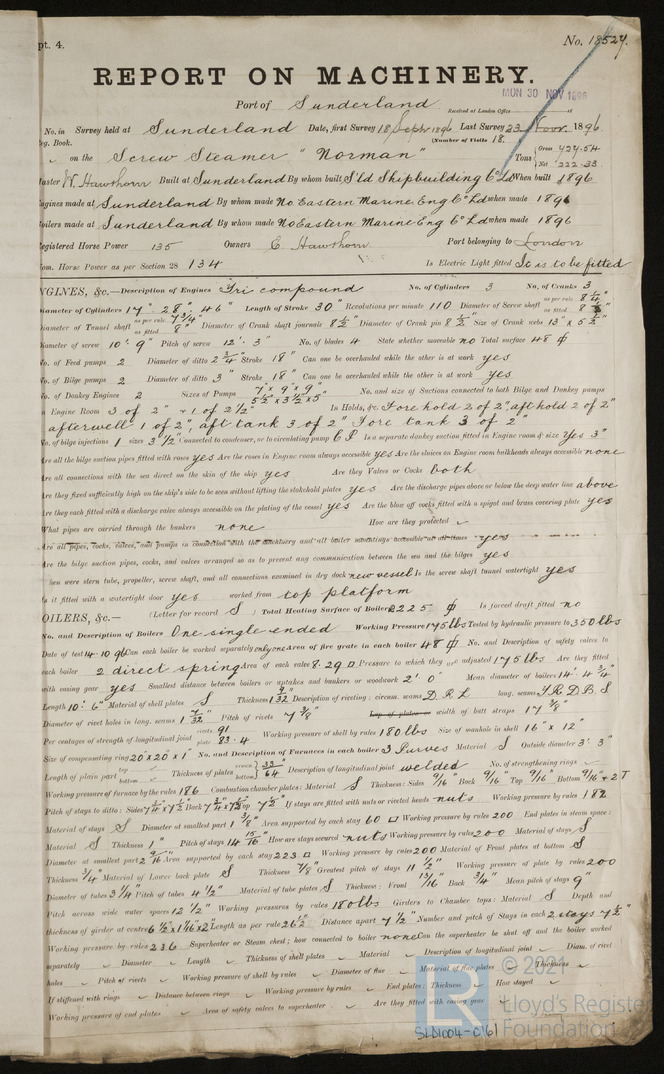 pt. 4.
No. 18524.
REPORT ON MACHINERY.
MON 30 NOV 1896
Port of Sunderland
Received at London Office
No. in Survey held at Sunderland Date, first Survey 18 Sept 1896 Last Survey 23 Novr. 1896
eg. Book. (Number of Visits 18.
on the Screw Steamer "Norman" Tons Gross 424.54 Net 222.33
aster W. Hawthorn Built at Sunderland By whom built S'ld Shipbuilding Co Ld When built 1896
ngines made at Sunderland By whom made No Eastern Marine Eng Co Ld when made 1896
oilers made at Sunderland By whom made No Eastern Marine Eng Co Ld when made 1896
egistered Horse Power 135 Owners C. Hawthorn Port belonging to London
om. Horse Power as per Section 28 134 Is Electric Light fitted It is to be fitted
NGINES, &c.—Description of Engines Tri compound No. of Cylinders 3 No. of Cranks 3
Diameter of Cylinders 17" 28" 46" Length of Stroke 30" Revolutions per minute 110 Diameter of Screw shaft as per rule 8 1/4" as fitted
Diameter of Tunnel shaft as per rule 7 3/4" as fitted 8" Diameter of Crank shaft journals 8 1/2" Diameter of Crank pin 8 1/2" Size of Crank webs 13" x 5 1/2"
Diameter of screw 10'. 9" Pitch of screw 12'. 3" No. of blades 4 State whether moveable no Total surface 48 ф
No. of Feed pumps 2 Diameter of ditto 2 3/4" Stroke 18" Can one be overhauled while the other is at work yes
No. of Bilge pumps 2 Diameter of ditto 3" Stroke 18" Can one be overhauled while the other is at work yes
No. of Donkey Engines 2 Sizes of Pumps 7" x 9" x 9" 5 1/2" x 3 1/2" x 5" No. and size of Suctions connected to both Bilge and Donkey pumps
n Engine Room 3 of 2" + 1 of 2 1/2" In Holds, &c. Fore hold 2 of 2", aft hold 2 of 2"
afterwell 1 of 2", aft tank 3 of 2" Fore tank 3 of 2"
No. of bilge injections 1 sizes 3 1/2" Connected to condenser, or to circulating pump C P Is a separate donkey suction fitted in Engine room & size Yes 3"
Are all the bilge suction pipes fitted with roses yes Are the roses in Engine room always accessible yes Are the sluices on Engine room bulkheads always accessible none
Are all connections with the sea direct on the skin of the ship yes Are they Valves or Cocks both
Are they fixed sufficiently high on the ship's side to be seen without lifting the stokehold plates yes Are the discharge pipes above or below the deep water line above
Are they each fitted with a discharge valve always accessible on the plating of the vessel yes Are the blow off cocks fitted with a spigot and brass covering plate yes
What pipes are carried through the bunkers none How are they protected ✓
Are all pipes, cocks, valves, and pumps in connection with the machinery and all boiler mountings accessible at all times yes
Are the bilge suction pipes, cocks, and valves arranged so as to prevent any communication between the sea and the bilges yes
hen were stern tube, propeller, screw shaft, and all connections examined in dry dock new vessel Is the screw shaft tunnel watertight yes
Is it fitted with a watertight door yes worked from top platform
OILERS, &c.— (Letter for record S) Total Heating Surface of Boilers 2225 ф Is forced draft fitted no
No. and Description of Boilers One single ended Working Pressure 175 lbs Tested by hydraulic pressure to 350 lbs
Date of test 14.10.96 Can each boiler be worked separately only one Area of fire grate in each boiler 48 ф No. and Description of safety valves to
each boiler 2 direct spring Area of each valve 8.29 □ Pressure to which they are adjusted 175 lbs Are they fitted
with easing gear yes Smallest distance between boilers or uptakes and bunkers or woodwork 2'. 0" Mean diameter of boilers 14'. 4 3/4"
Length 10'. 6" Material of shell plates S Thickness 1 9/32" Description of riveting: circum. seams D.R.L long. seams T.R.D.B.S
Diameter of rivet holes in long. seams 1 7/32" Pitch of rivets 7 3/8" Lap of plates or width of butt straps 17 3/8"
Per centages of strength of longitudinal joint rivets 91 plate 83.4 Working pressure of shell by rules 180 lbs Size of manhole in shell 16" x 12"
Size of compensating ring 20" x 20" x 1" No. and Description of Furnaces in each boiler 3 Purves Material S Outside diameter 3'. 3"
Length of plain part top bottom Thickness of plates crown bottom 33/64" Description of longitudinal joint welded No. of strengthening rings ✓
Working pressure of furnace by the rules 186 Combustion chamber plates: Material S Thickness: Sides 9/16" Back 9/16" Top 9/16" Bottom 9/16" + 2T
Pitch of stays to ditto: Sides 7 1/2" x 7 1/2" Back Top 7 1/2" If stays are fitted with nuts or riveted heads nuts Working pressure by rules 182
Material of stays S Diameter at smallest part 1 3/8" Area supported by each stay 60 □ Working pressure by rules 200 End plates in steam space:
Material S Thickness 1" Pitch of stays 14 15/16" How are stays secured nuts Working pressure by rules 200 Material of stays S
Diameter at smallest part 2 9/16" Area supported by each stay 223 □ Working pressure by rules 200 Material of Front plates at bottom S
Thickness 3/4" Material of Lower back plate S Thickness 7/8" Greatest pitch of stays 11 1/2" Working pressure of plate by rules 200
Diameter of tubes 3 1/4" Pitch of tubes 4 1/2" Material of tube plates S Thickness: Front 13/16" Back 3/4" Mean pitch of stays 9"
Pitch across wide water spaces 12 1/2" Working pressures by rules 180 lbs Girders to Chamber tops: Material S Depth and
thickness of girder at centre Length as per rule 26 1/2" Distance apart 7 1/2" Number and pitch of Stays in each 2 stays 7 1/2"
Working pressure by rules 236 Superheater or Steam chest; how connected to boiler none Can the superheater be shut off and the boiler worked
separately Diameter Length Thickness of shell plates Material Description of longitudinal joint Diam. of rivet
holes Pitch of rivets Working pressure of shell by rules Diameter of flue Material of flue plates Thickness
If stiffened with rings Distance between rings Working pressure by rules End plates: Thickness How stayed
Working pressure of end plates Area of safety valves to superheater Are they fitted with easing gear
© 2021
Lloyd's Register
Foundation
SLD1004-0161